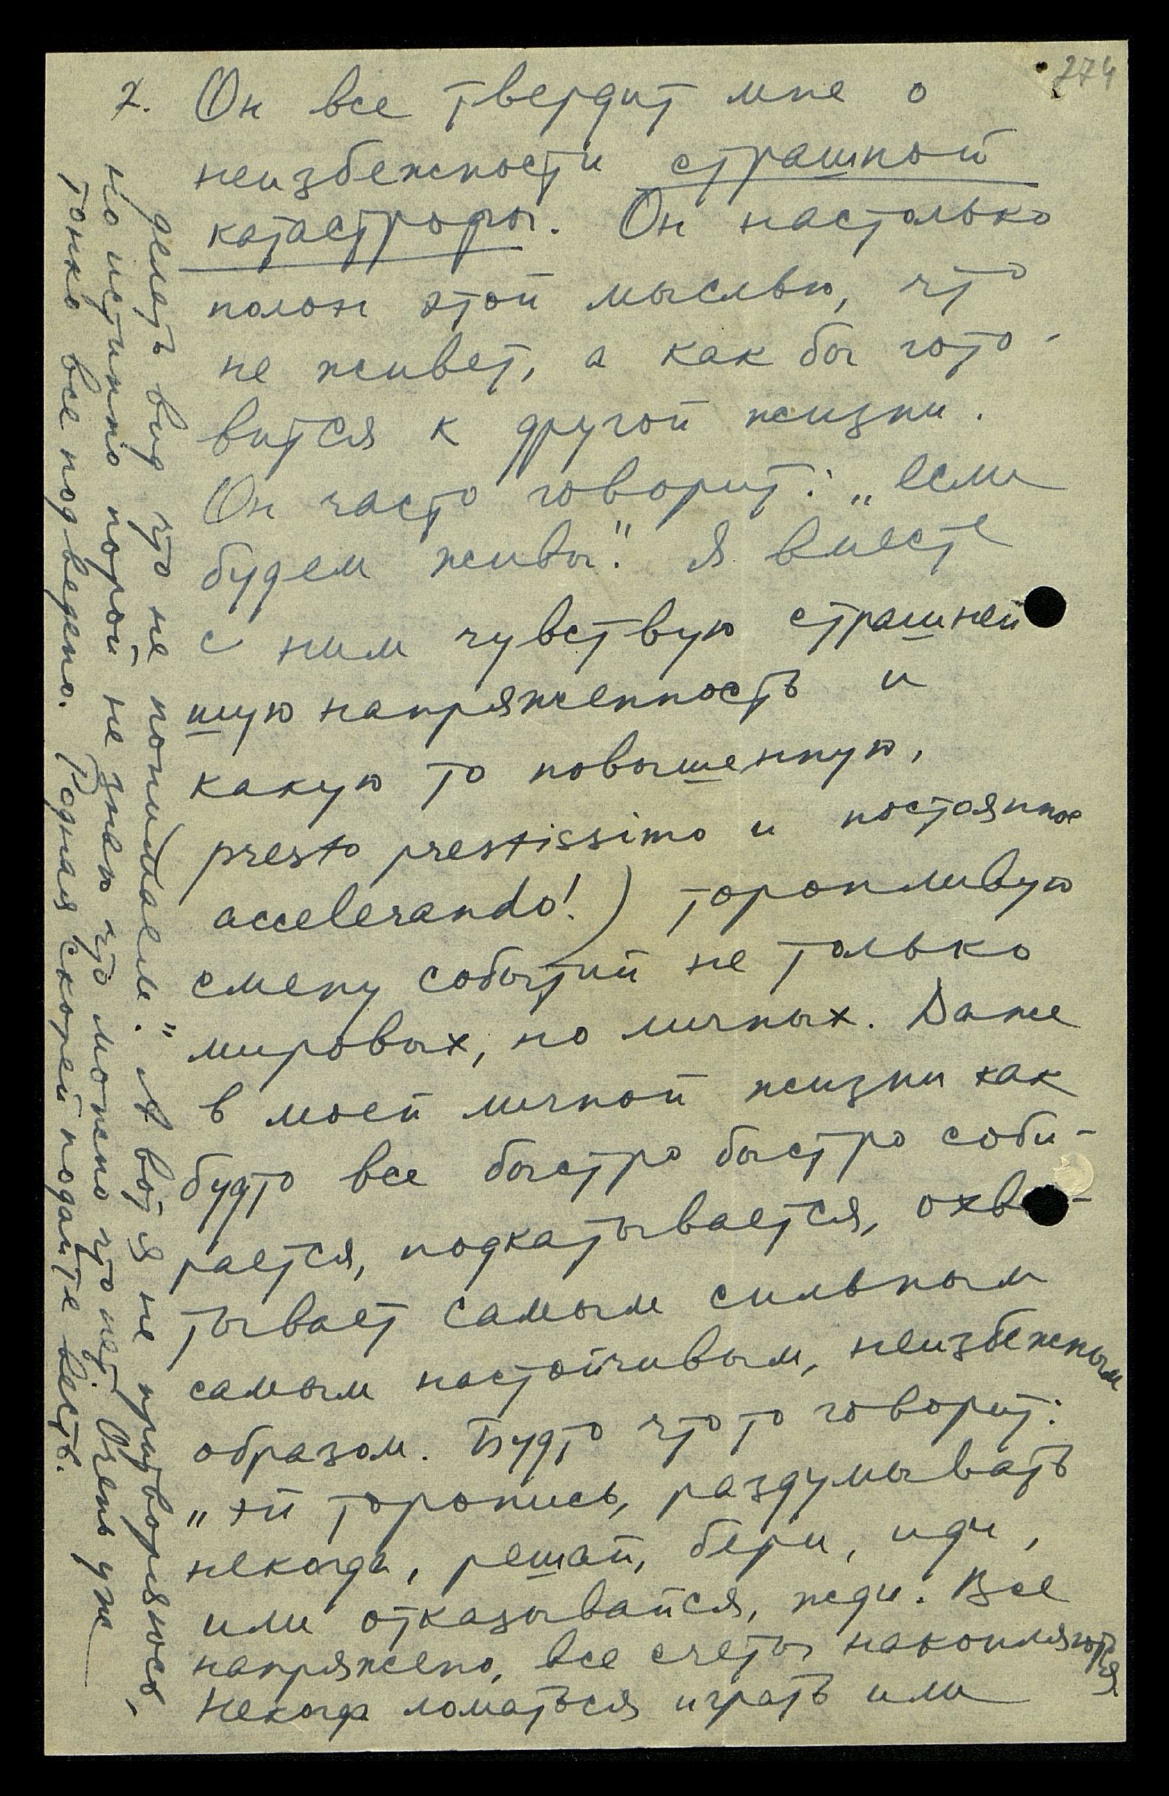 274
2. Он все твердит мне о
неизбежности страшной
катастрофы. Он настолько
полон этой мыслью, что
не живет, а как бы гото-
вится к другой жизни.
Он часто говорит: „если
будем живы". Я вместе
с ним чувствую страшней
шую напряженность и
какую то повышенную,
presto prestissimo и постоянное
accelerando!) торопливую
смену событий не только
мировых, но личных. Даже
в моей личной жизни как
будто все быстро быстро соби-
рается, подкатывается, охва-
тывает самым сильным
самым настойчивым, неизбежным
образом. Будто что то говорит:
„Эй торопись, раздумывать
некогда, решай, бери, иди,
или отказывайся, жди. Все
напряжено, все счеты накопляються
Некогда ломаться играть или
делать вид что не понимаем." А вот я не притворяюсь,
но истинно порой не знаю что можно что нет. Очень уж
тонко все подведено. Родная скорей подайте весть.